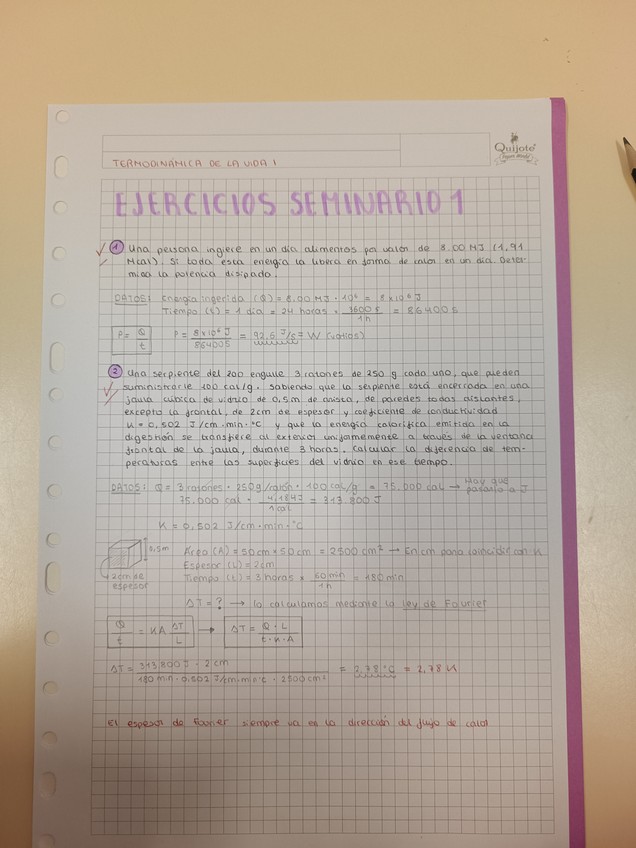 Quijote
TERMODINÁMICA DE LA VIDA 1
EJERCICIOS SEMINARIO 1
1 Una persona ingiere en un día alimentos por valor de 8.00 MJ (1,91
Mcal). Si toda esta energía la libera en forma de calor en un día. Deter-
mina la potencia disipada.
DATOS: Energía ingerida (Q) = 8.00 MJ · 10⁶ = 8 x 10⁶ J
Tiempo (t) = 1 día = 24 horas · 3600 s / 1h = 86400 s
P = Q / t P = 8x10⁶ J / 86400s = 92,6 J/s = W (vatios)
2 Una serpiente del zoo engulle 3 ratones de 250 g cada uno, que pueden
suministrarle 100 cal/g. Sabiendo que la serpiente está encerrada en una
jaula cúbica de vidrio de 0,5m de arista, de paredes todas aislantes,
excepto la frontal, de 2cm de espesor y coeficiente de conductividad
K = 0,502 J/cm·min·°C y que la energía calorífica emitida en la
digestión se transfiere al exterior uniformemente a través de la ventana
frontal de la jaula, durante 3 horas. Calcular la diferencia de tem-
peraturas entre las superficies del vidrio en ese tiempo.
DATOS: Q = 3 ratones · 250g/ratón · 100 cal/g = 75.000 cal → Hay que pasarlo a J
75.000 cal · 4,184J / 1 cal = 313.800 J
K = 0,502 J/cm·min·°C
0,5m
2cm de espesor
Área (A) = 50 cm x 50 cm = 2500 cm² → En cm para coincidir con K
Espesor (L) = 2cm
Tiempo (t) = 3 horas x 60 min / 1 h = 180 min
ΔT = ? → la calculamos mediante la ley de Fourier
Q / t = KA ΔT / L → ΔT = Q · L / t · K · A
ΔT = 313.800 J · 2 cm / 180 min · 0,502 J/cm·min·°C · 2500 cm² = 2,78 °C = 2,78 K
El espesor de Fourier siempre va en la dirección del flujo de calor